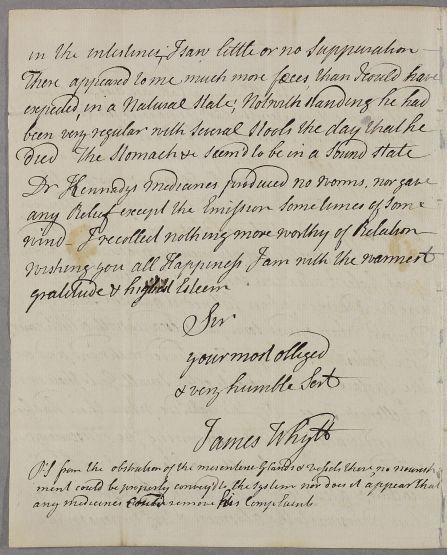 in the intestines; I saw little or no Suppuration
There appeared to me much more fœces than I could have
expected, in a Natural State; Notwithstanding he had
been very regular with Several Stools the day that he
died The Stomach &c Seem'd to be in a Sound State
Dr Kennadys medicines produced no worms, nor gave
any Relief except the Emission Sometimes of Some
wind — I recollect nothing more worthy of Relation
wishing you all Happiness I am with the warmest
gratitude & highest Esteem
Sir
your most obliged
& very humble Sert
James Whytt
P.S from the obstruction of the mesenteric Glands & Vessels there no nourish
ment could be properly convey'd to the System nor does it appear that
any medicines could remove his Complaints